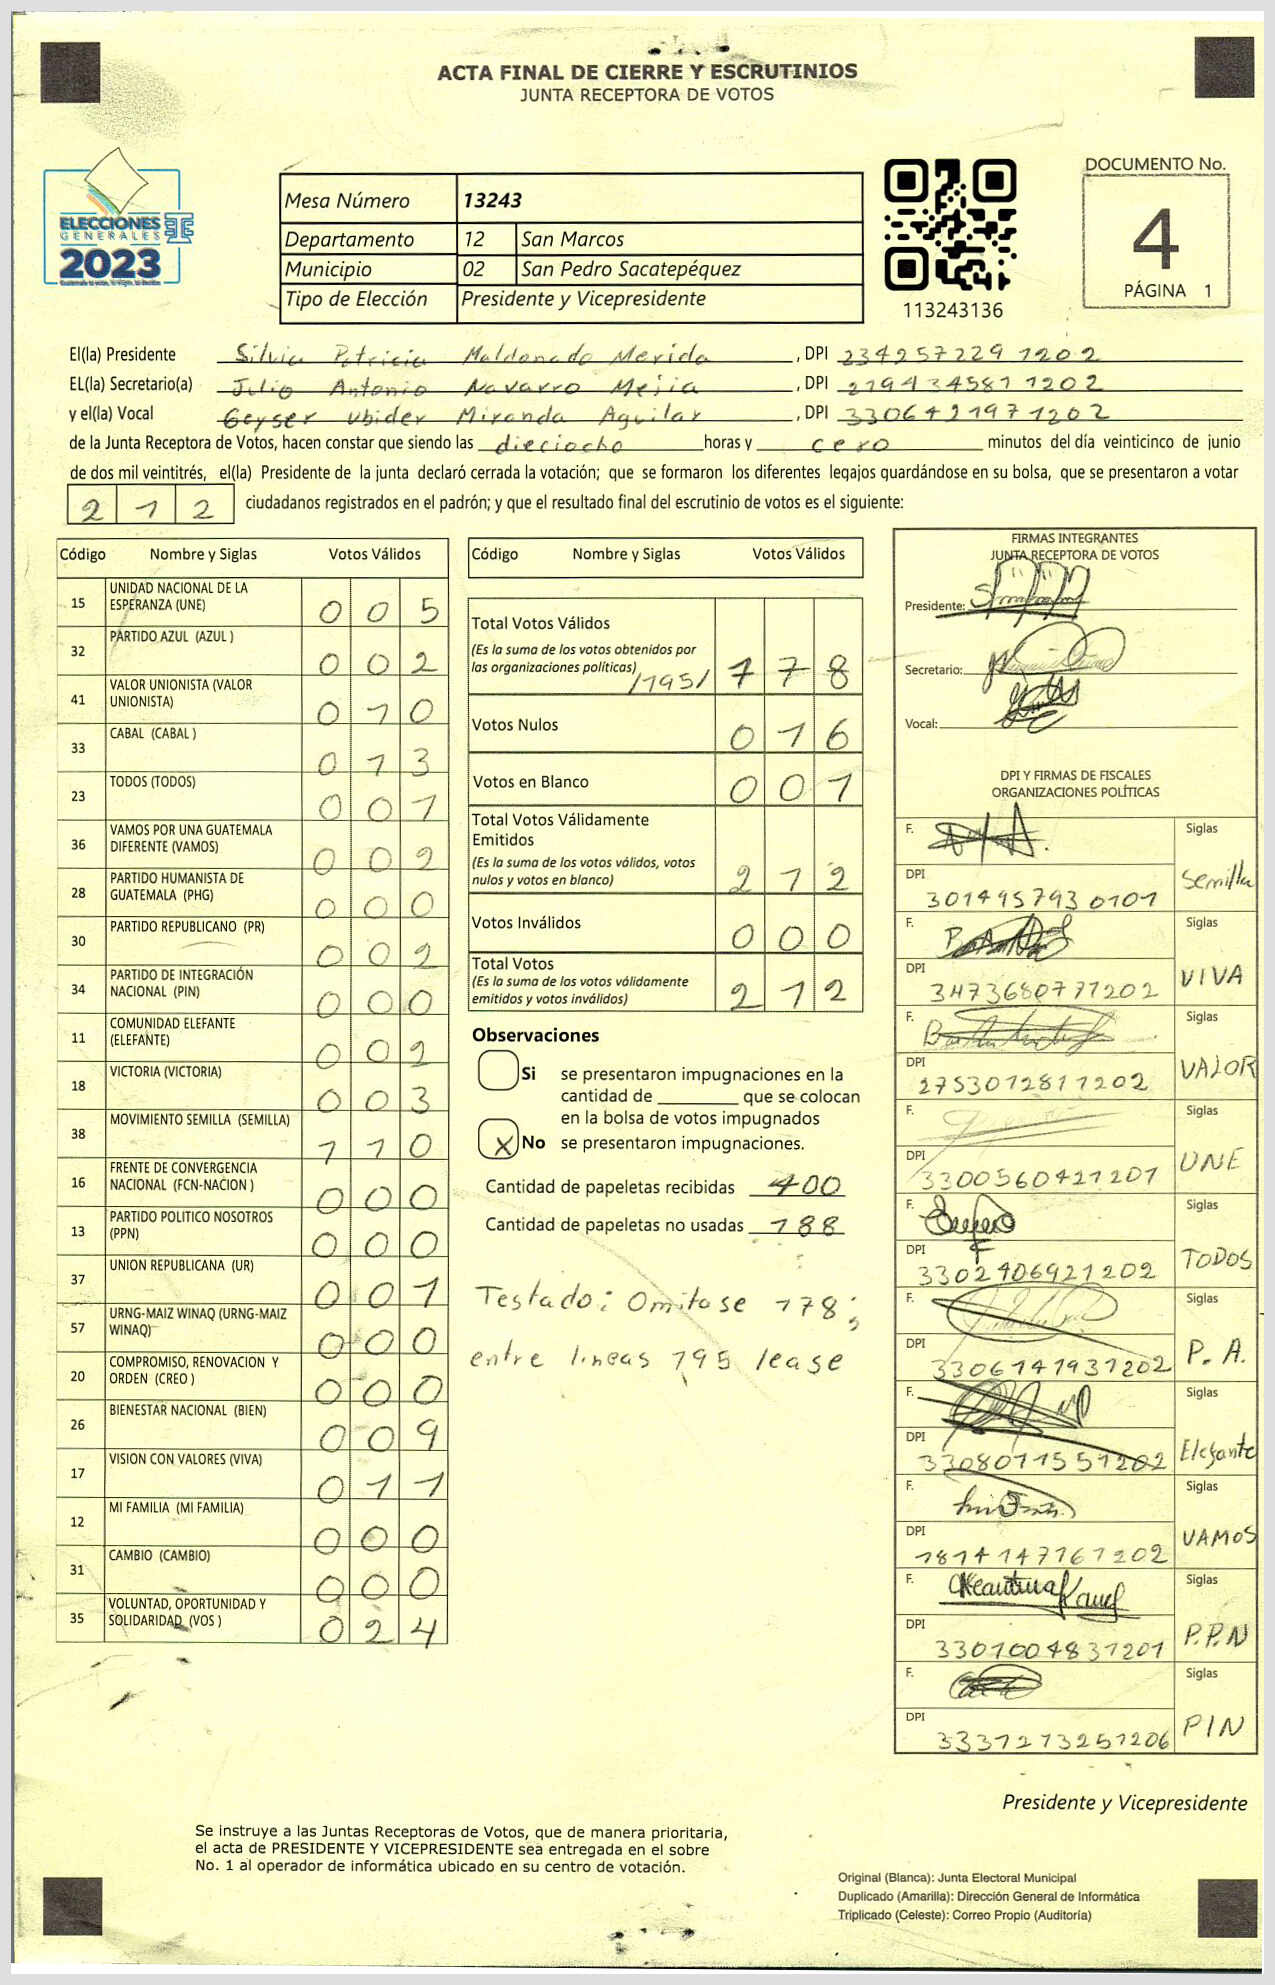 ACTA FINAL DE CIERRE Y ESCRUTINIOS
JUNTA RECEPTORA DE VOTOS
ELECCIONES
GENERALES
2023
TSE
Mesa Número 13243
Departamento 12 San Marcos
Municipio 02 San Pedro Sacatepéquez
Tipo de Elección Presidente y Vicepresidente
113243136
DOCUMENTO No.
4
PÁGINA 1
El(la) Presidente Silvia Patricia Maldonado Merida, DPI 234257229 1202
EL(la) Secretario(a) Julio Antonio Navarro Mejia, DPI 219434581 1202
y el(la) Vocal Geyser Ubider Miranda Aguilar, DPI 330642197 1202
de la Junta Receptora de Votos, hacen constar que siendo las dieciocho horas y cero minutos del día veinticinco de junio
de dos mil veintitrés, el(la) Presidente de la junta declaró cerrada la votación; que se formaron los diferentes legajos guardándose en su bolsa, que se presentaron a votar
212 ciudadanos registrados en el padrón; y que el resultado final del escrutinio de votos es el siguiente:
Código Nombre y Siglas Votos Válidos
15 UNIDAD NACIONAL DE LA ESPERANZA (UNE) 005
32 PARTIDO AZUL (AZUL ) 002
41 VALOR UNIONISTA (VALOR UNIONISTA) 010
33 CABAL (CABAL ) 013
23 TODOS (TODOS) 001
36 VAMOS POR UNA GUATEMALA DIFERENTE (VAMOS) 002
28 PARTIDO HUMANISTA DE GUATEMALA (PHG) 000
30 PARTIDO REPUBLICANO (PR) 002
34 PARTIDO DE INTEGRACIÓN NACIONAL (PIN) 000
11 COMUNIDAD ELEFANTE (ELEFANTE) 002
18 VICTORIA (VICTORIA) 003
38 MOVIMIENTO SEMILLA (SEMILLA) 110
16 FRENTE DE CONVERGENCIA NACIONAL (FCN-NACION ) 000
13 PARTIDO POLITICO NOSOTROS (PPN) 000
37 UNION REPUBLICANA (UR) 001
57 URNG-MAIZ WINAQ (URNG-MAIZ WINAQ) 000
20 COMPROMISO, RENOVACION Y ORDEN (CREO ) 000
26 BIENESTAR NACIONAL (BIEN) 009
17 VISION CON VALORES (VIVA) 011
12 MI FAMILIA (MI FAMILIA) 000
31 CAMBIO (CAMBIO) 000
35 VOLUNTAD, OPORTUNIDAD Y SOLIDARIDAD (VOS ) 024
Código Nombre y Siglas Votos Válidos
Total Votos Válidos
(Es la suma de los votos obtenidos por
las organizaciones políticas) /195/ 178
Votos Nulos 016
Votos en Blanco 001
Total Votos Válidamente
Emitidos
(Es la suma de los votos válidos, votos
nulos y votos en blanco) 212
Votos Inválidos 000
Total Votos
(Es la suma de los votos válidamente
emitidos y votos inválidos) 212
Observaciones
Si se presentaron impugnaciones en la
cantidad de ________ que se colocan
en la bolsa de votos impugnados
X No se presentaron impugnaciones.
Cantidad de papeletas recibidas 400
Cantidad de papeletas no usadas 188
Testado: Omitase 178;
entre lineas 195 lease
FIRMAS INTEGRANTES
JUNTA RECEPTORA DE VOTOS
Presidente:
Secretario:
Vocal:
DPI Y FIRMAS DE FISCALES
ORGANIZACIONES POLÍTICAS
F. Siglas
DPI 301495793 0101 Semilla
F. Siglas
DPI 3473680771202 VIVA
F. Siglas
DPI 2753012811202 VALOR
F. Siglas
DPI 3300560421201 UNE
F. Siglas
DPI 3302406921202 TODOS
F. Siglas
DPI 3306141931202 P. A.
F. Siglas
DPI 3308011551202 Elefante
F. Siglas
DPI 1814147161202 VAMOS
F. Siglas
DPI 3301004831201 P.P.N
F. Siglas
DPI 3331213251206 PIN
Presidente y Vicepresidente
Se instruye a las Juntas Receptoras de Votos, que de manera prioritaria,
el acta de PRESIDENTE Y VICEPRESIDENTE sea entregada en el sobre
No. 1 al operador de informática ubicado en su centro de votación.
Original (Blanca): Junta Electoral Municipal
Duplicado (Amarilla): Dirección General de Informática
Triplicado (Celeste): Correo Propio (Auditoría)